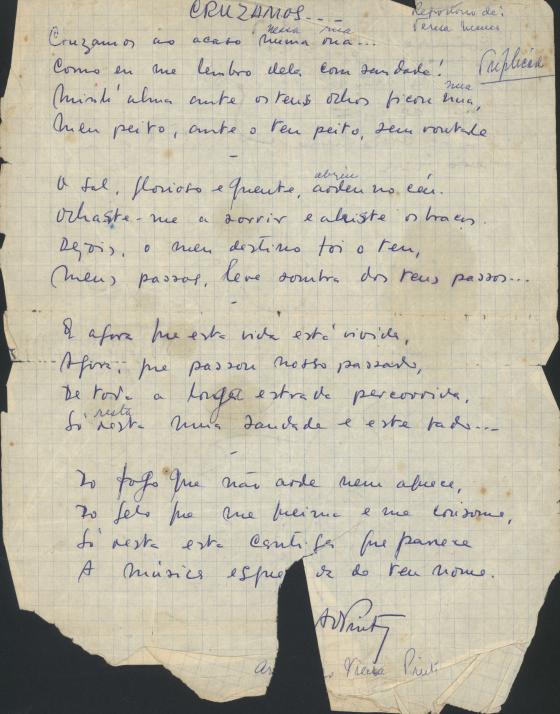 CRUZAMOS....
Repertório de:
Teresa Nunes
Cruzamos ao acaso numa rua...
nessa rua
Como eu me lembro dela com saudade!
Duplicado
Minh'alma ante os teus olhos ficou nua,
nua
Meu peito, ante o teu peito, sem vontade
-
O sol, glorioso e quente, ardeu no céu.
abriu
Olhaste-me a sorrir e abriste os braços.
Depois, o meu destino foi o teu,
Meus passos, leve sombra dos teus passos...
-
E agora que esta vida está vivida,
Agora, que passou nosso passado,
De toda a longa estrada percorrida,
Só resta uma saudade e este fado...
resta
-
Do fogo que não arde nem aquece,
Do gelo que me queima e me consome,
Só resta esta cantiga que parece
A música esque da do teu nome.
Vieira Pinto